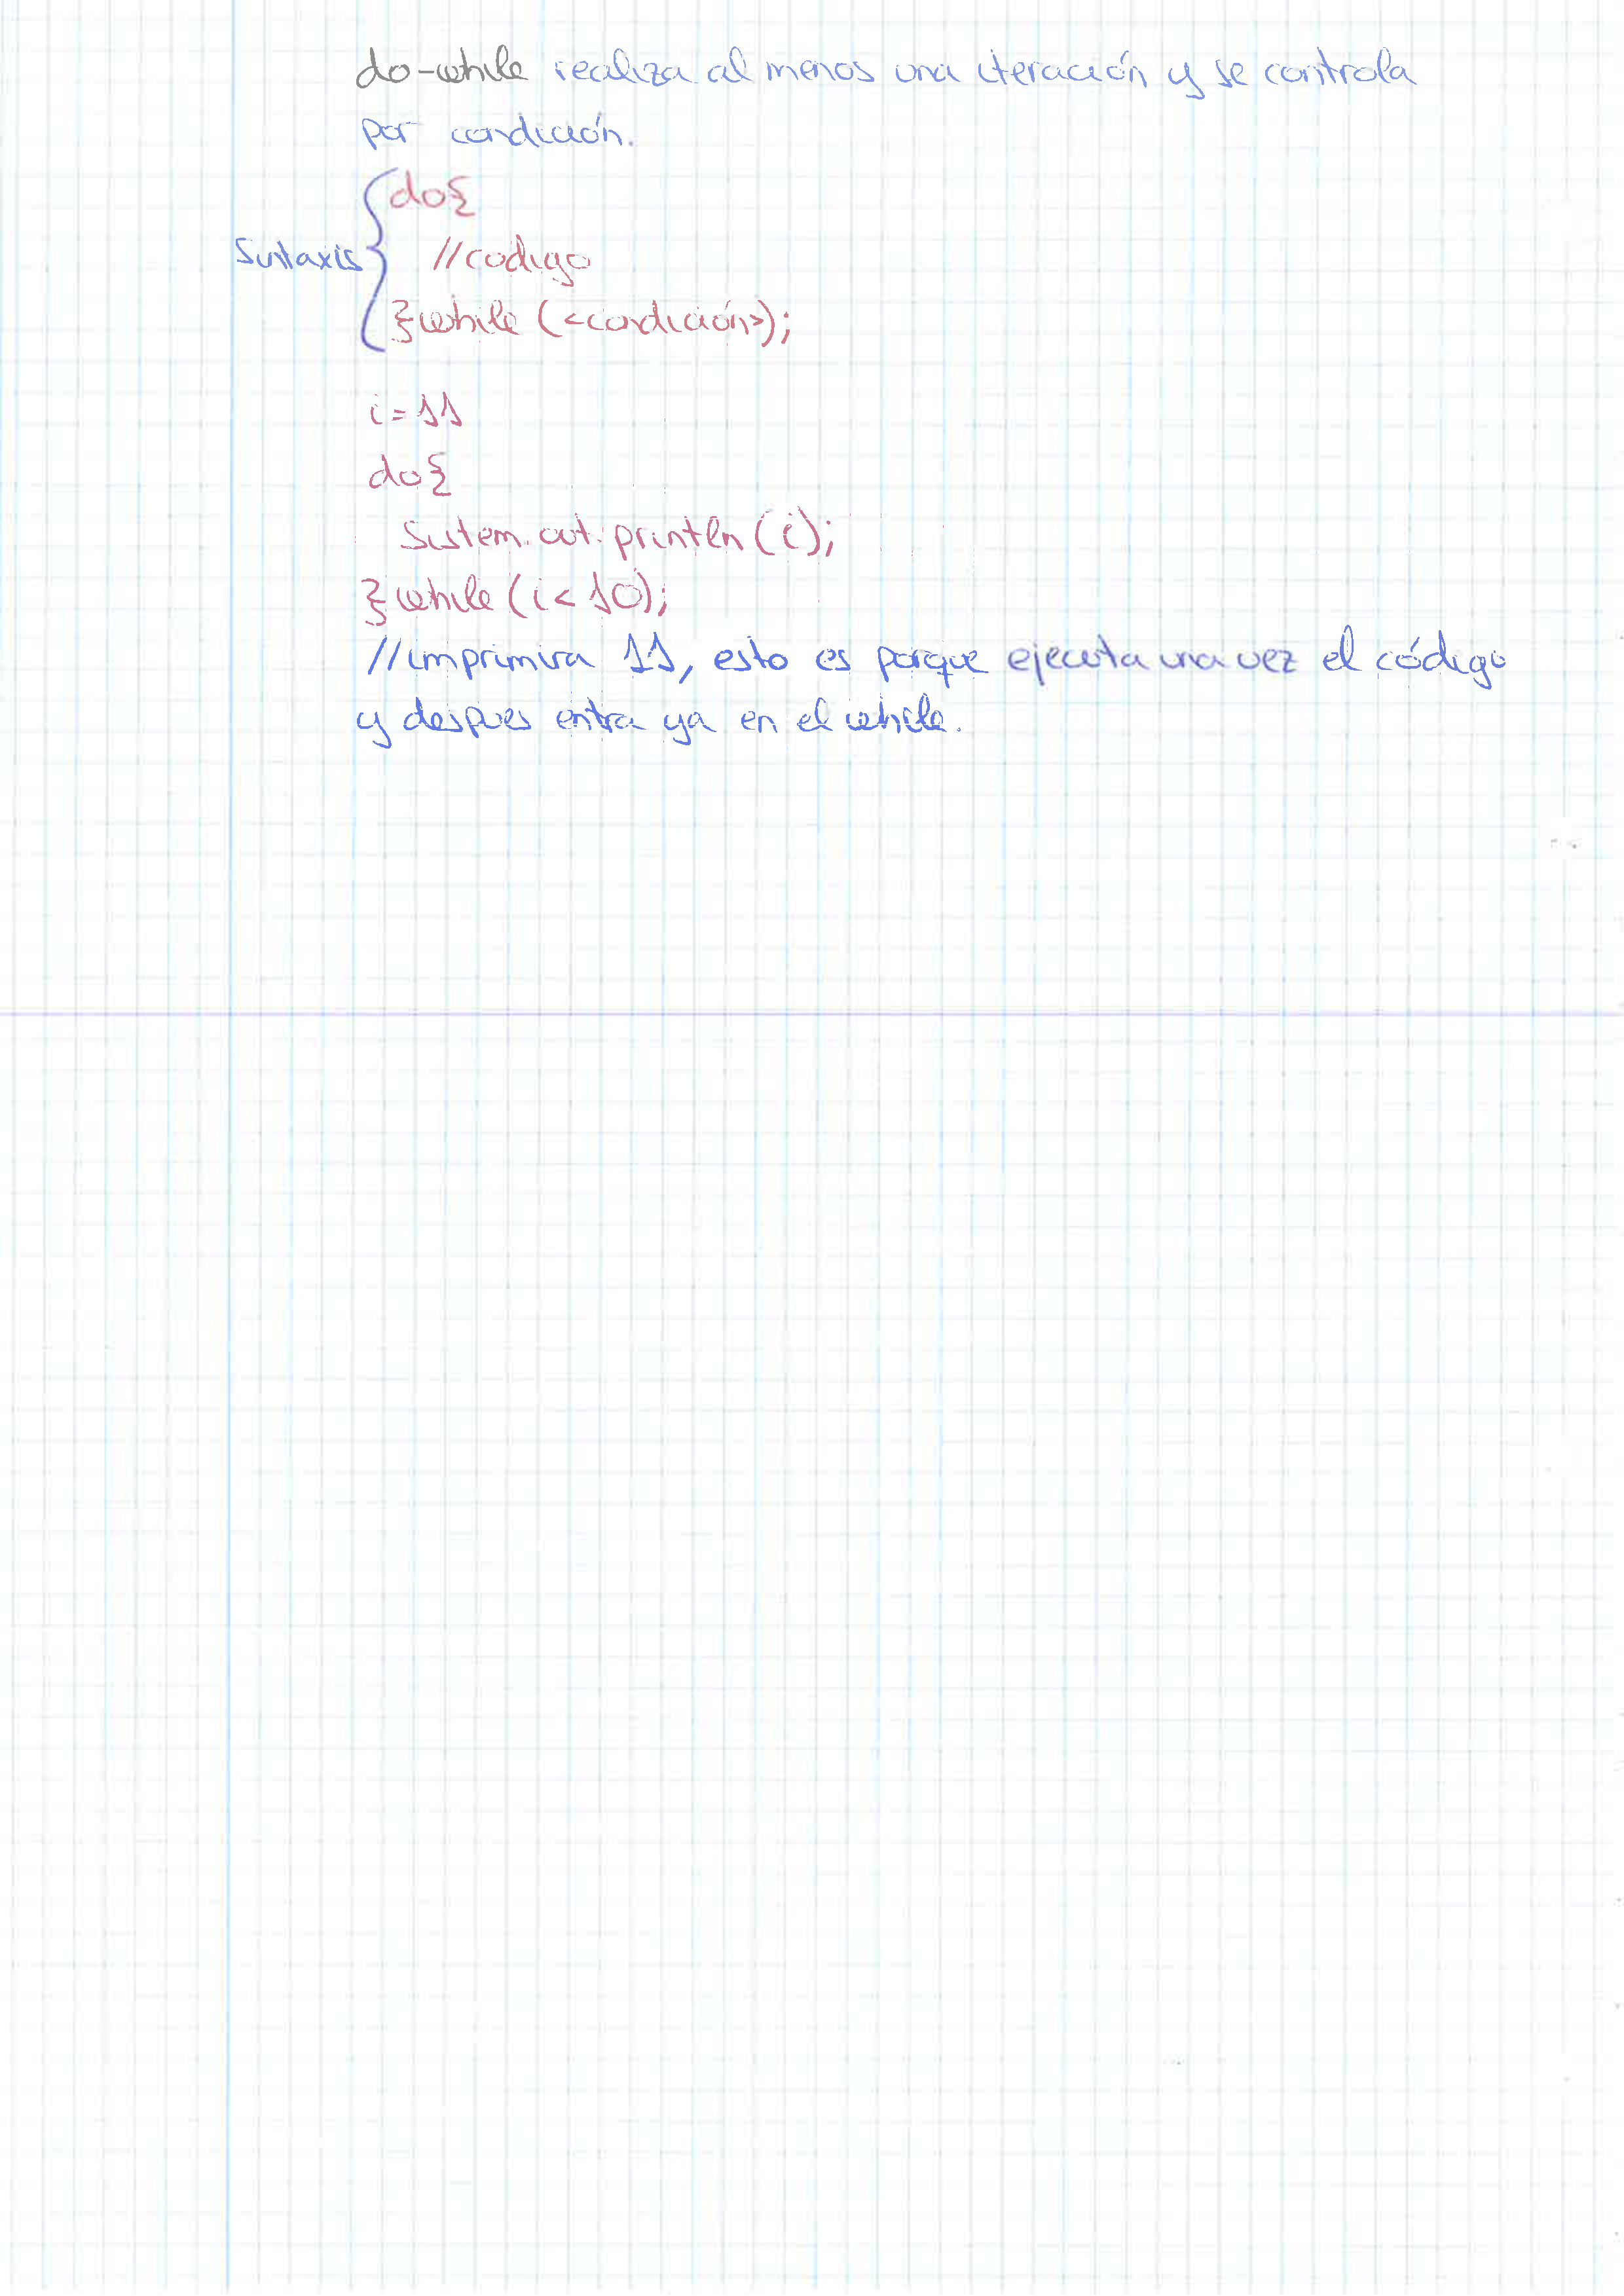 do-while realiza al menos una iteración y se controla
por condición.
do{
Sintaxis //codigo
}while (<condición>);
i=11
do{
Sistem.out.println(i);
}while(i<10);
//imprimira 11, esto es porque ejecuta una vez el código
y despues entra ya en el while.